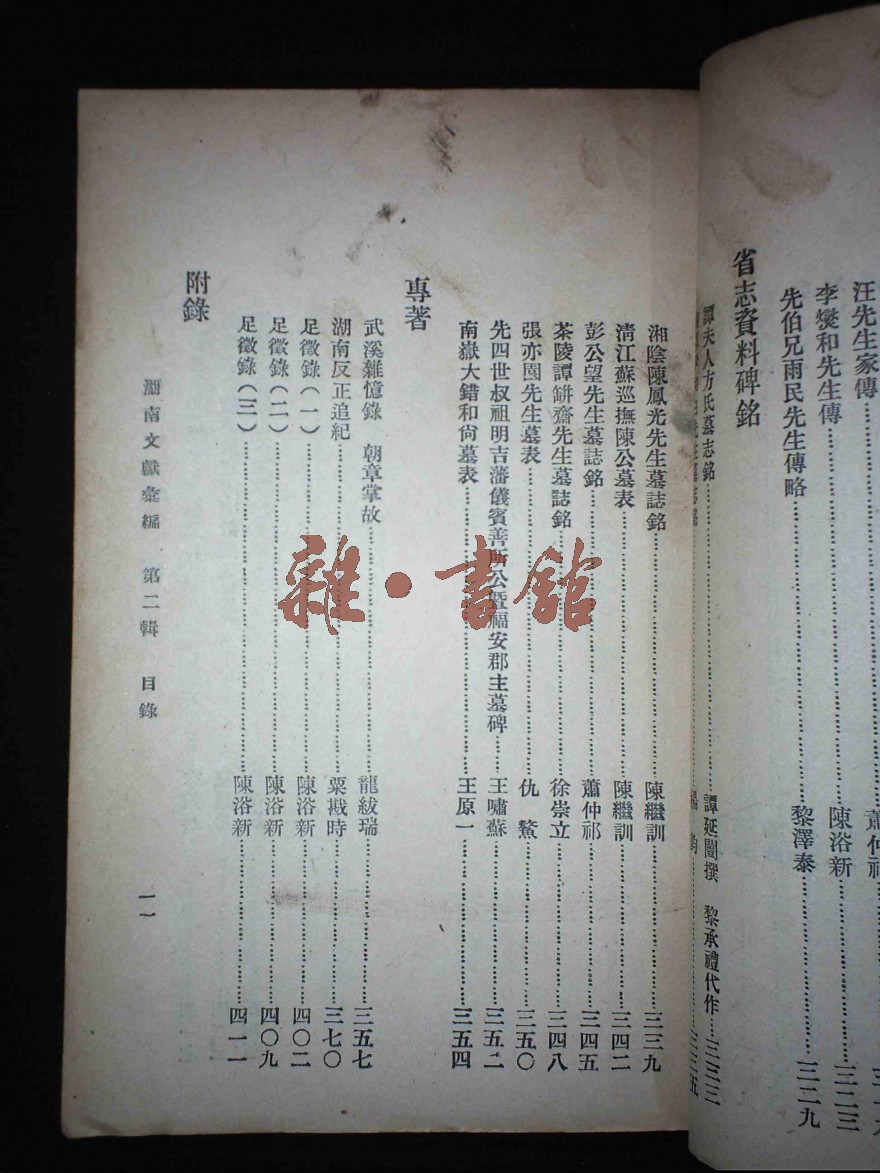 汪先生家傳 蕭仲祁
李燮和先生傳 陳浴新 三二三
先伯兄雨民先生傳略 黎澤泰 三二九
省志資料碑銘
譚夫人方氏墓志銘 譚延闓撰 黎承禮代作 三三三
三三五
湘陰陳鳳光先生墓誌銘 陳繼訓 三三九
清江蘇巡撫陳公墓表 陳繼訓 三四二
彭公望先生墓誌銘 蕭仲祁 三四五
茶陵譚缾齋先生墓誌銘 徐崇立 三四八
張亦園先生墓表 仇鰲 三五〇
先四世叔祖明吉藩儀賓善所公暨福安郡主墓碑 王嘯蘇 三五二
南嶽大錯和尙墓表 王原一 三五四
專著
武溪雜憶錄 朝章掌故 龍紱瑞 三五七
湖南反正追紀 粟戡時 三七〇
足徵錄(一) 陳浴新 四〇二
足徵錄(二) 陳浴新 四〇九
足徵錄(三) 陳浴新 四一一
附錄
湖南文獻彙編 第二輯 目錄
一一
雜·書館